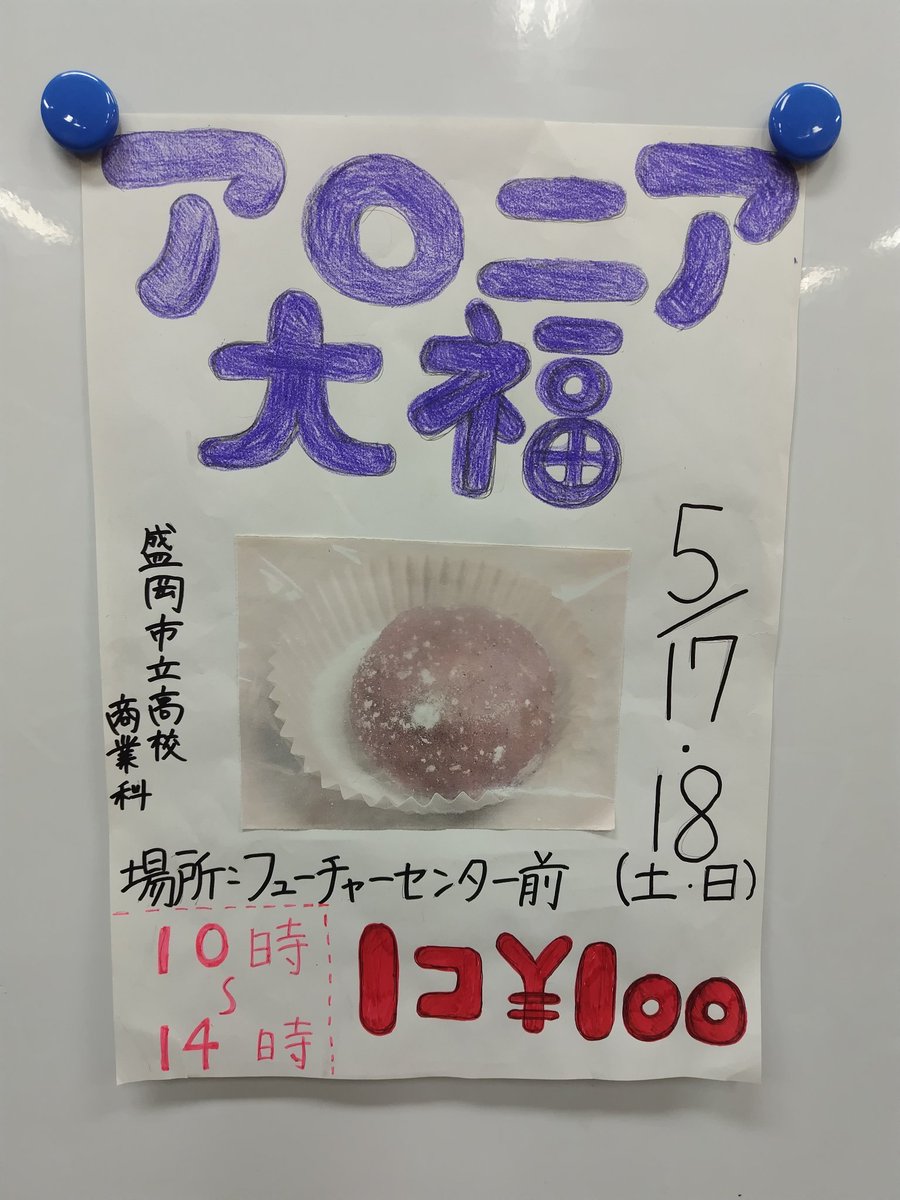 アロニア
大福
5/17・18
(土・日)
盛岡市立高校
商業科
場所:フューチャーセンター前
10時
〜
14時
1コ¥100